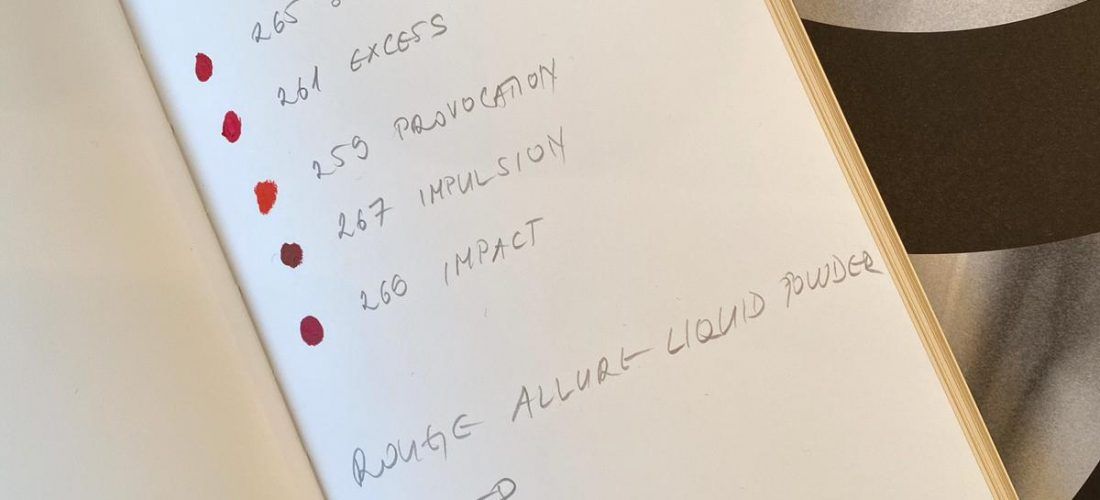 265
261 EXCESS
259 PROVOCATION
267 IMPULSION
268 IMPACT
ROUGE ALLURE LIQUID POWDER